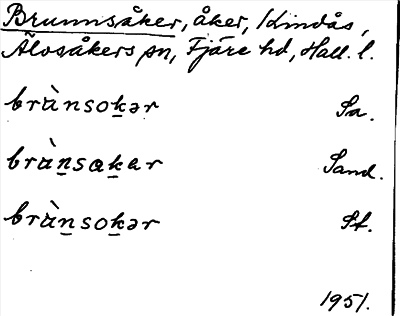 Brunnsåker, åker, Kindås,
Älvsåkers sn, Fjäre hd, Hall. l.
brùnsokər Sa.
brùnsakar Sand.
brùnsokər Sf.
1951.